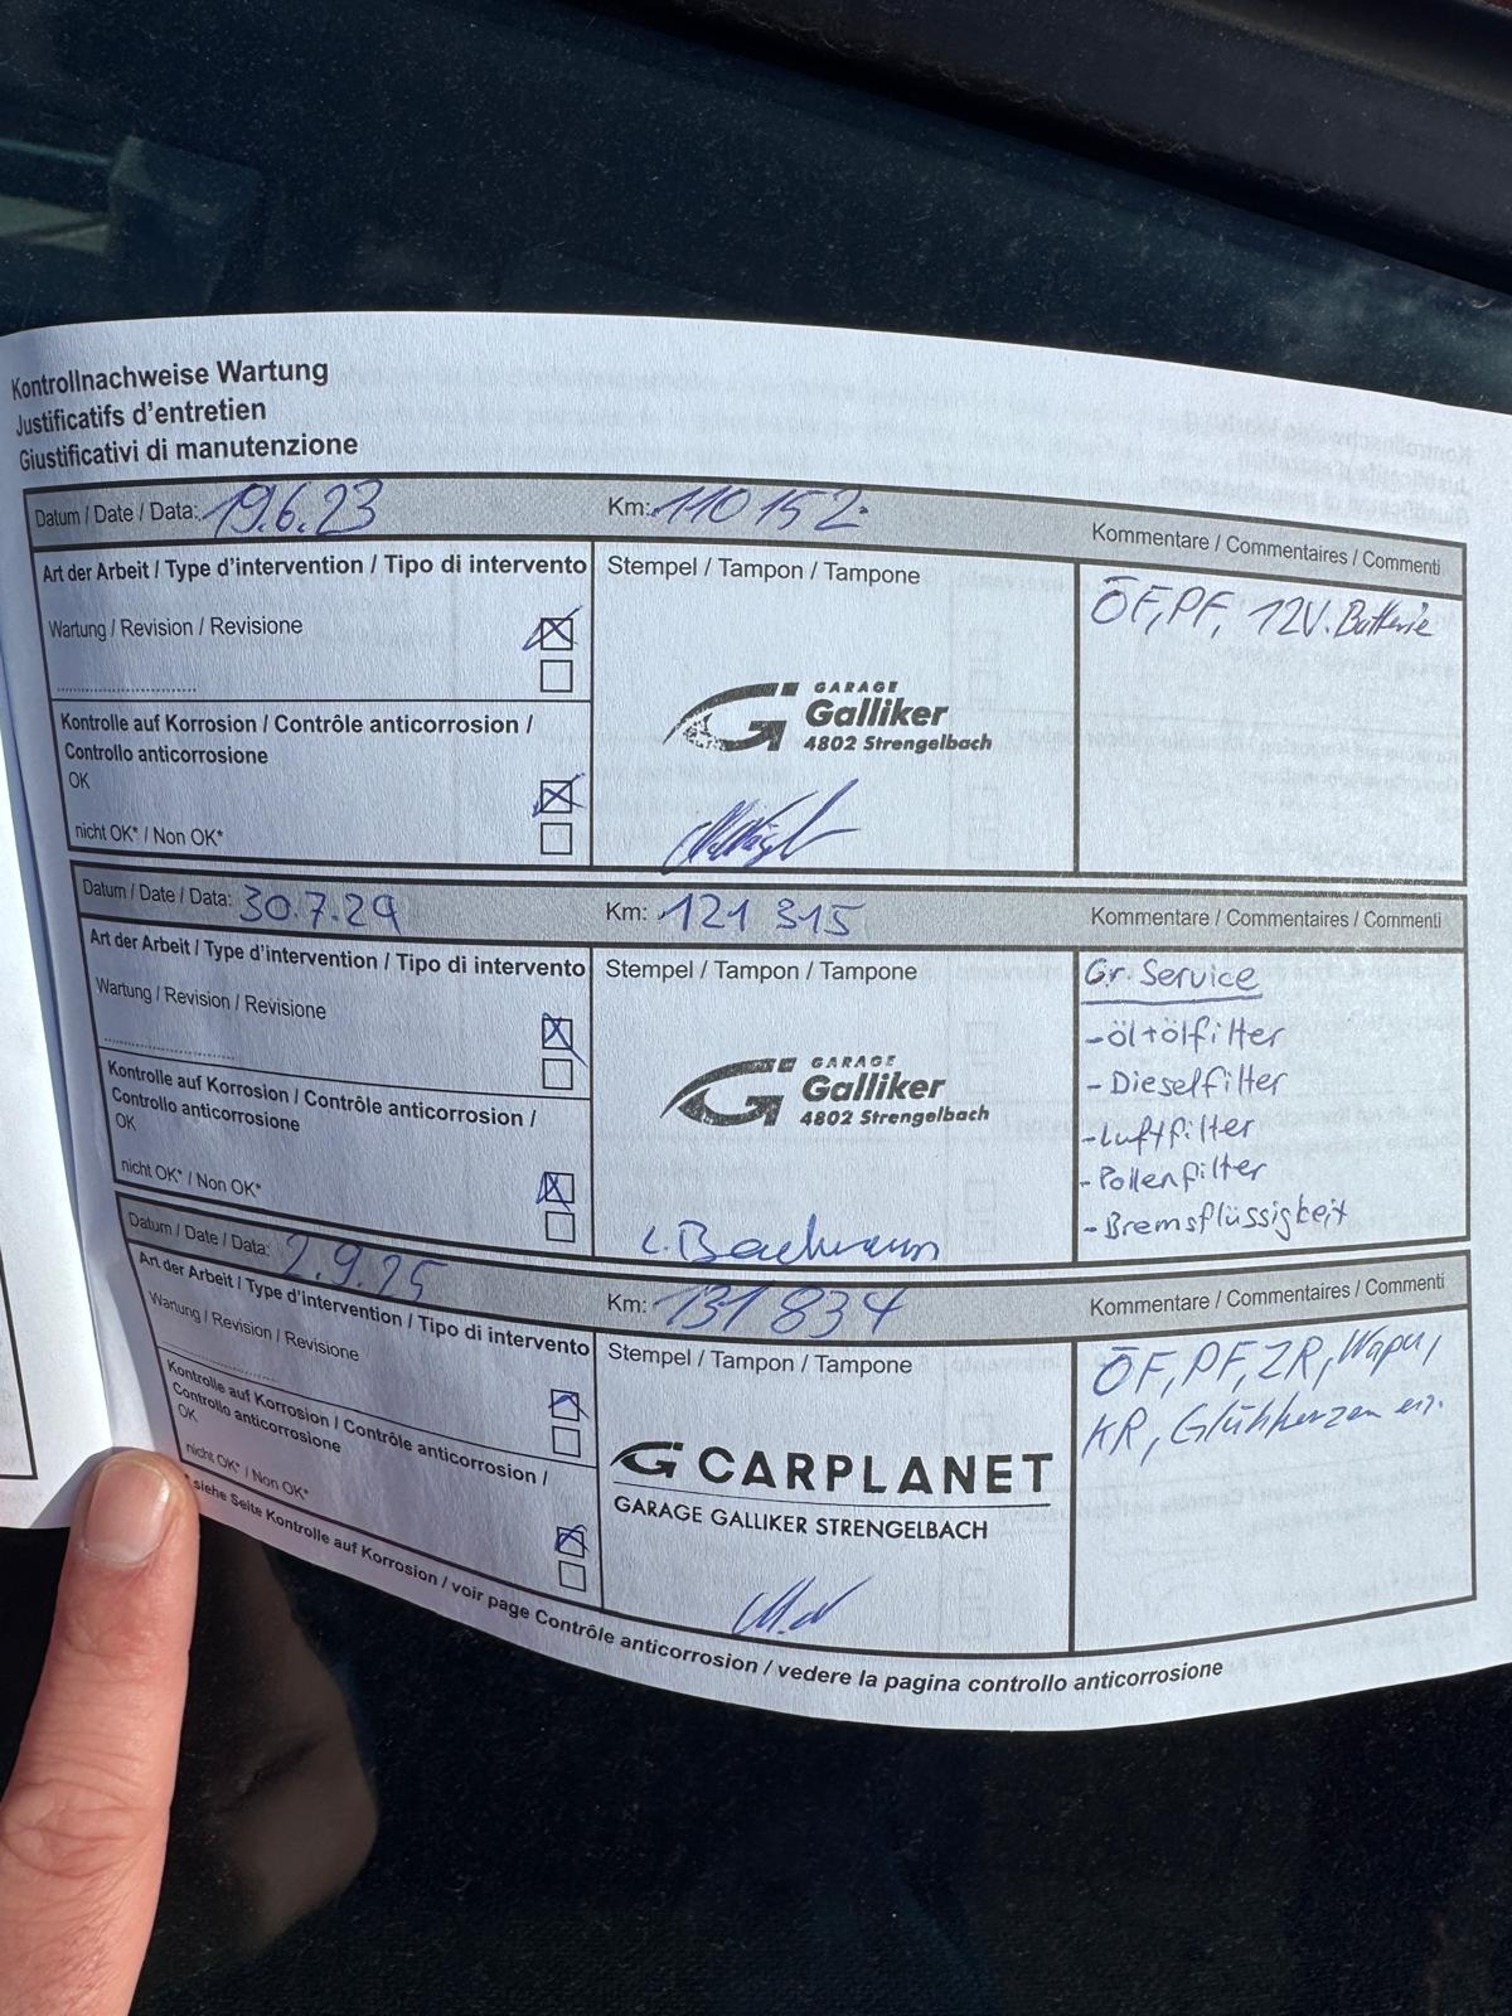 Kontrollnachweise Wartung
Justificatifs d'entretien
Giustificativi di manutenzione
Datum / Date / Data: 19.6.23 Km: 110 152 Kommentare / Commentaires / Commenti
Art der Arbeit / Type d'intervention / Tipo di intervento Stempel / Tampon / Tampone
ÖF, PF, 12V. Batterie
Wartung / Revision / Revisione
GARAGE
Galliker
4802 Strengelbach
Kontrolle auf Korrosion / Contrôle anticorrosion /
Controllo anticorrosione
OK
nicht OK* / Non OK*
Datum / Date / Data: 30.7.24 Km: 121 315 Kommentare / Commentaires / Commenti
Art der Arbeit / Type d'intervention / Tipo di intervento Stempel / Tampon / Tampone
Gr. Service
- öl+ölfilter
- Dieselfilter
- Luftfilter
- Pollenfilter
- Bremsflüssigkeit
Wartung / Revision / Revisione
GARAGE
Galliker
4802 Strengelbach
Kontrolle auf Korrosion / Contrôle anticorrosion /
Controllo anticorrosione
OK
nicht OK* / Non OK*
L. Bachmann
Datum / Date / Data: 2.9.25 Km: 131 834 Kommentare / Commentaires / Commenti
Art der Arbeit / Type d'intervention / Tipo di intervento Stempel / Tampon / Tampone
ÖF, PF, ZR, Wapu,
KR, Glühkerzen
Wartung / Revision / Revisione
G CARPLANET
GARAGE GALLIKER STRENGELBACH
Kontrolle auf Korrosion / Contrôle anticorrosion /
Controllo anticorrosione
OK
nicht OK* / Non OK*
* siehe Seite Kontrolle auf Korrosion / voir page Contrôle anticorrosion / vedere la pagina controllo anticorrosione